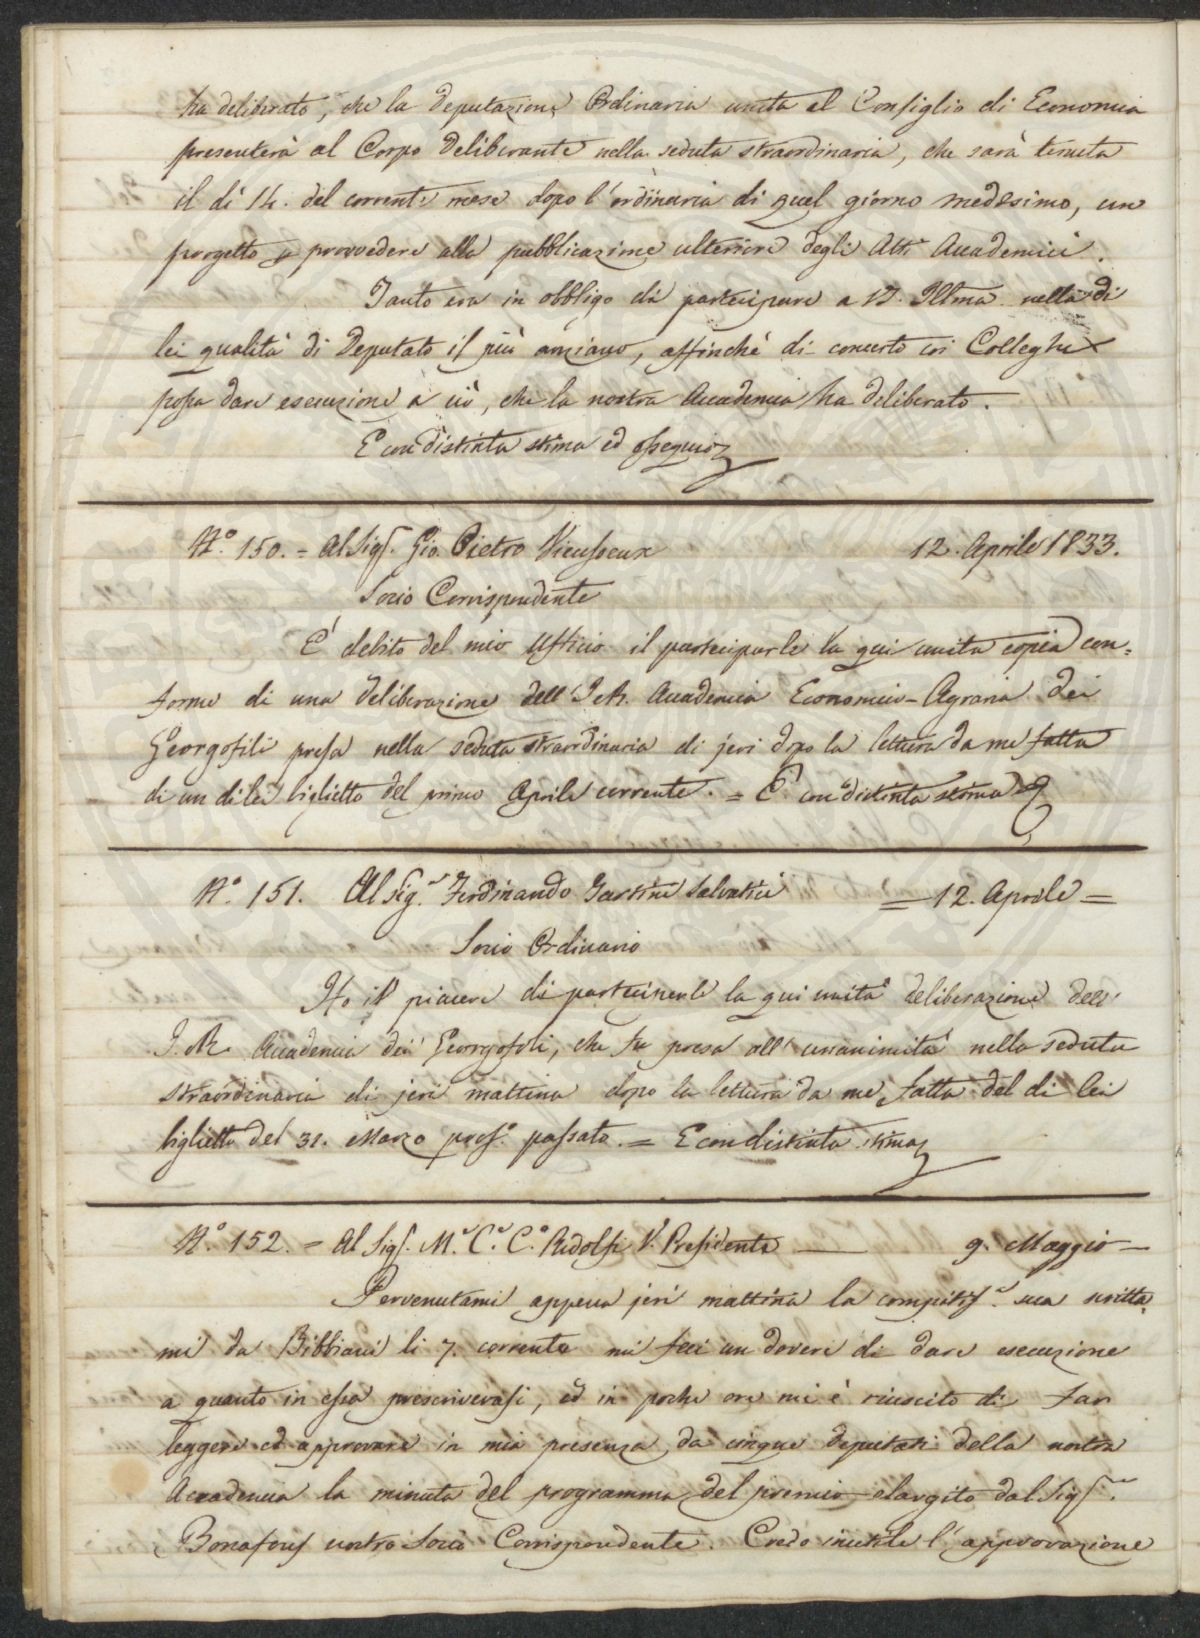 ha deliberato, che la Deputazione Ordinaria unita al Consiglio di Economia
presenterà al Corpo Deliberante nella seduta straordinaria, che sarà tenuta
il dì 14. del corrente mese dopo l'ordinaria di quel giorno medesimo, un
progetto p provvedere alla pubblicazione ulteriore degli Atti Accademici.
Tanto era in obbligo di partecipare a V.S. Illma nella di
lei qualità di Deputato il più anziano, affinchè di concerto coi Colleghi
possa dare esecuzione a ciò, che la nostra Accademia ha deliberato.
E con distinta stima ed ossequio
Nº. 150. = Al Sigr. Gio. Pietro Vieusseux 12. Aprile 1833.
Socio Corrispondente
È debito del mio Ufficio il parteciparle la qui unita copia con=
forme di una deliberazione dell'I. e R. Accademia Economico-Agraria dei
Georgofili presa nella seduta straordinaria di jeri dopo la lettura da me fatta
di un di lei biglietto del primo Aprile corrente. = E con distinta stima
Nº. 151. Al Sigr. Ferdinando Tartini Salvatici = 12. Aprile =
Socio Ordinario
Ho il piacere di parteciparle la qui unita deliberazione dell'
I. e R. Accademia dei Georgofili, che fu presa all'unanimità nella seduta
straordinaria di jeri mattina dopo la lettura da me fatta del di lei
biglietto del 31. Marzo pross.o passato. = E con distinta stima
Nº. 152. = Al Sigr. M.e C.e C.o Ridolfi V. Presidente — 9. Maggio —
Pervenutami appena jeri mattina la compitiss.a sua scritta
mi da Bibbiani li 7. corrente mi feci un dovere di dare esecuzione
a quanto in essa prescrivevasi, ed in poche ore mi è riuscito di far
leggere ed approvare in mia presenza, da cinque deputati della nostra
Accademia la minuta del programma del premio elargito dal Sigr.
Bonafous nostro Socio Corrispondente. Credo inutile l'approvazione